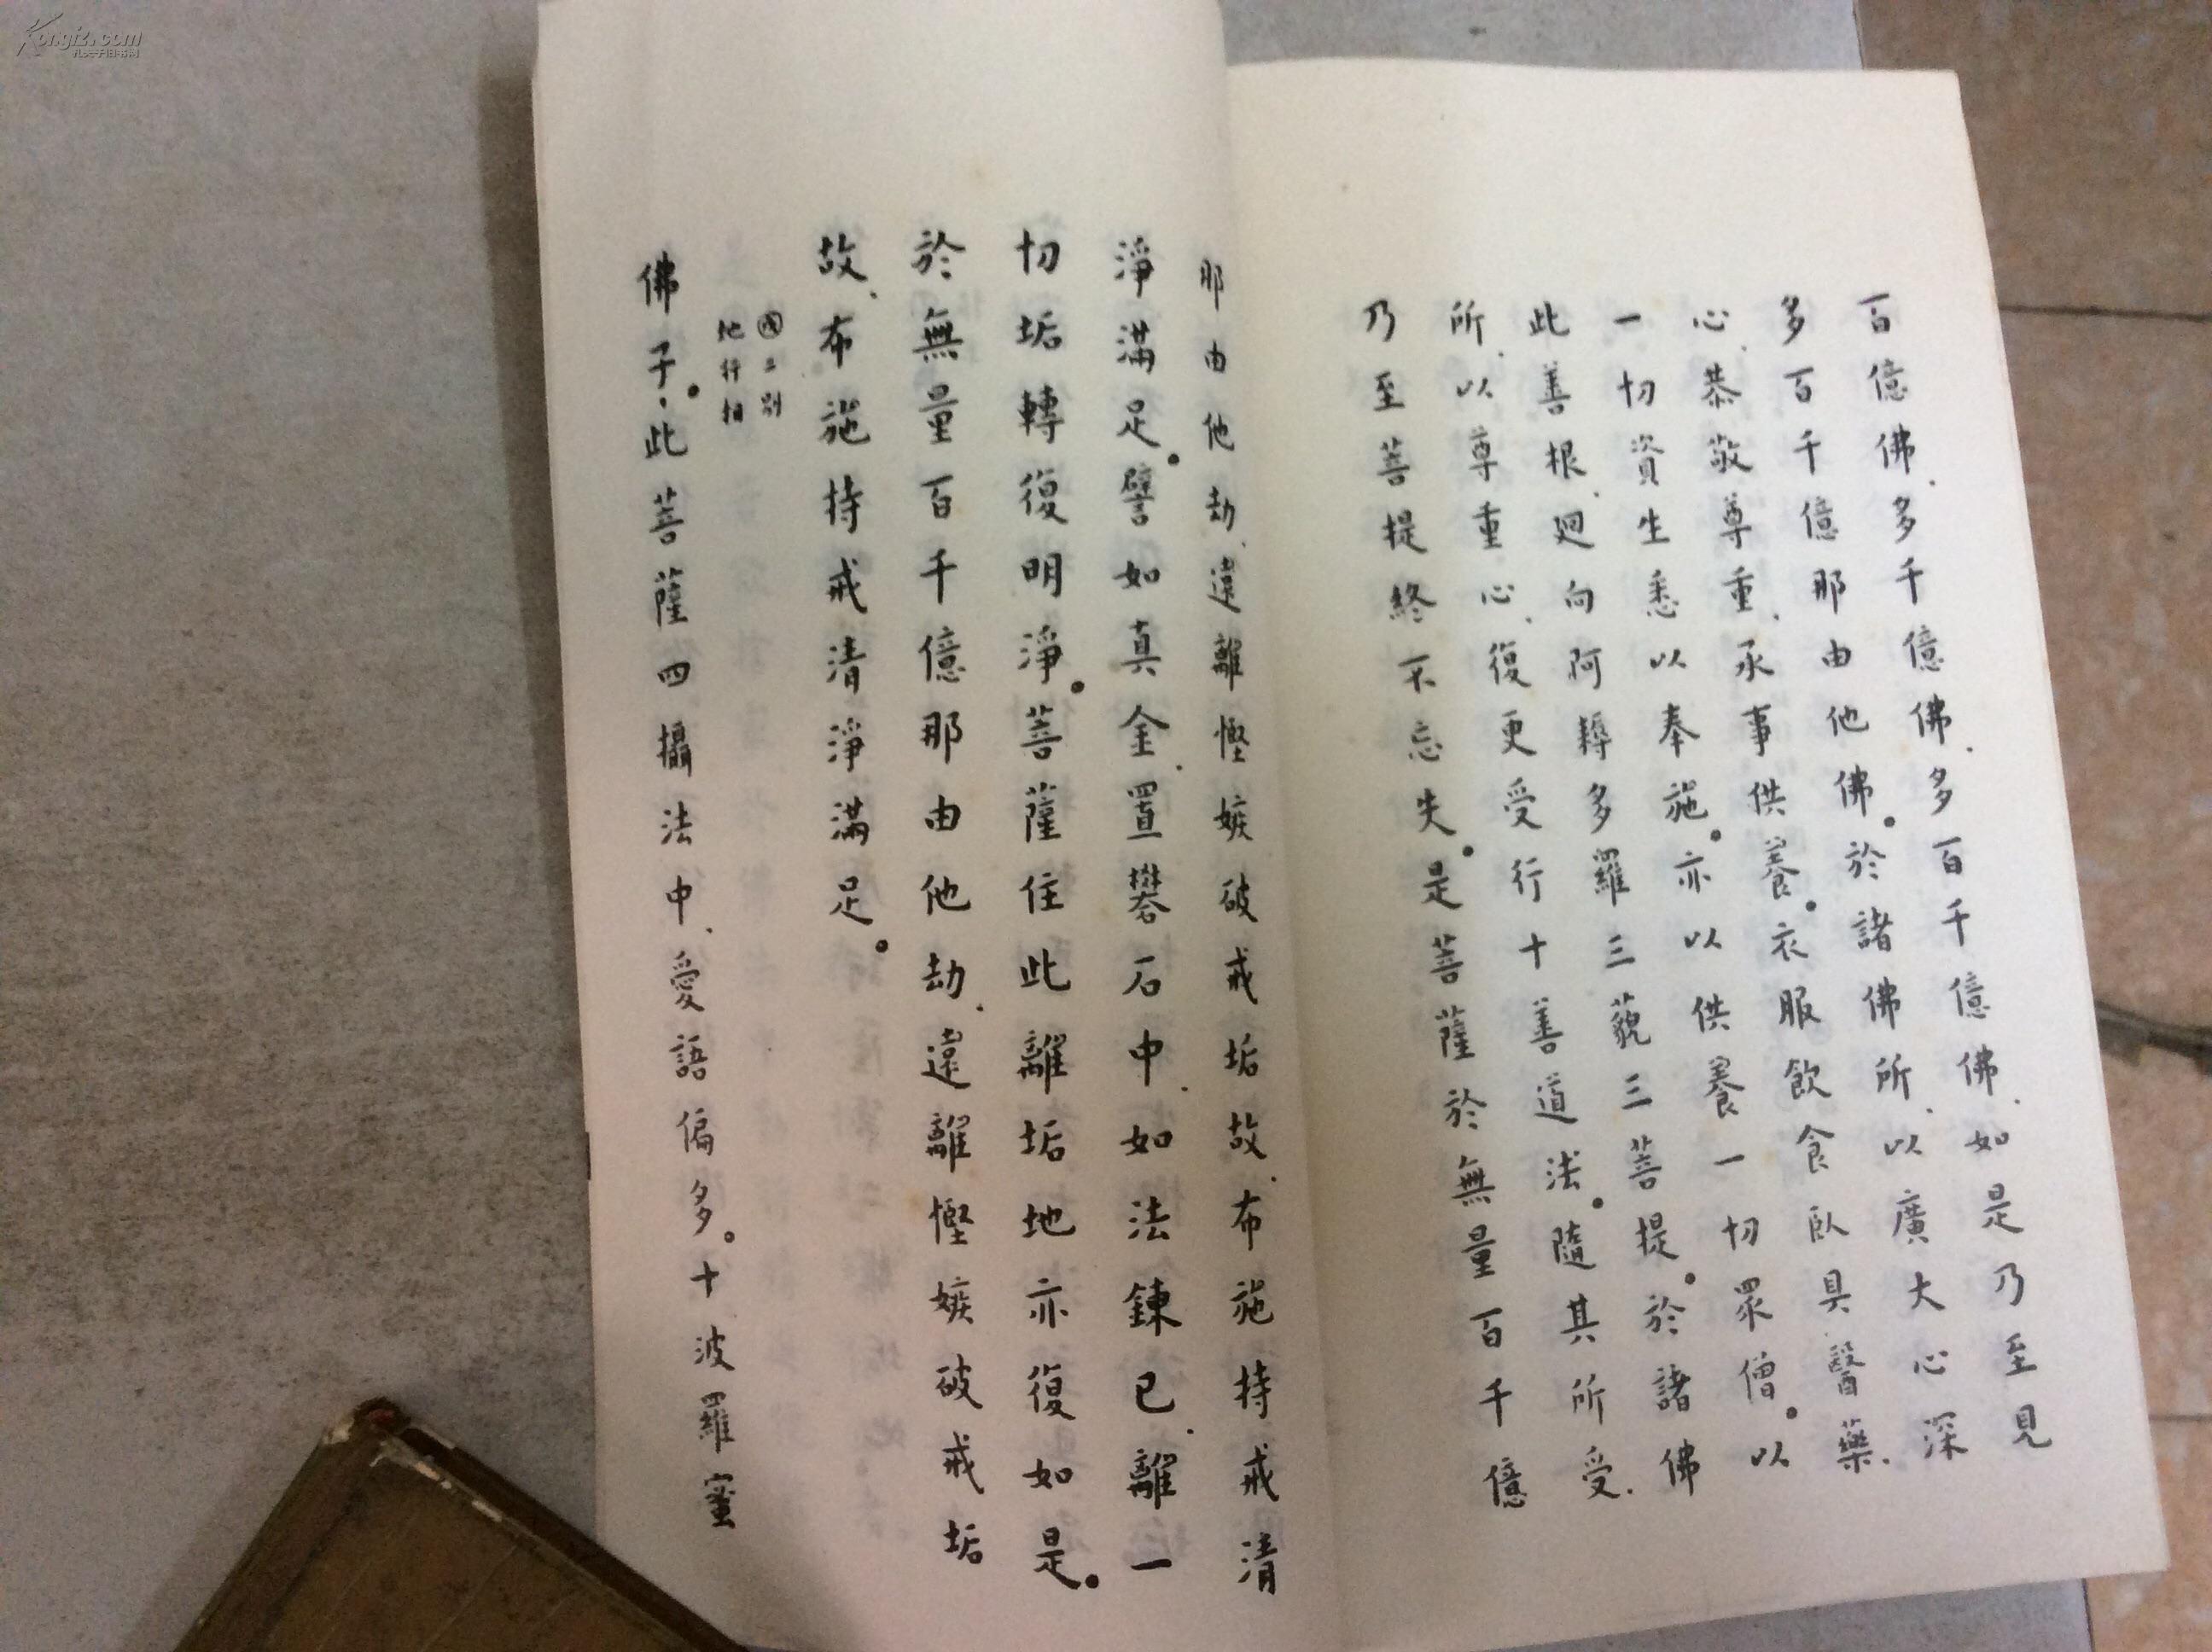 百億佛、多千億佛、多百千億佛、如是乃至見
多百千億那由他佛。於諸佛所、以廣大心深
心、恭敬尊重、承事供養。衣服飲食臥具醫藥、
一切資生悉以奉施。亦以供養一切眾僧。以
此善根、迴向阿耨多羅三藐三菩提。於諸佛
所、以尊重心、復更受行十善道法。隨其所受、
乃至菩提終不忘失。是菩薩於無量百千億
那由他劫、遠離慳嫉破戒垢故、布施持戒清
淨滿足。譬如真金、置礬石中、如法鍊已、離一
切垢轉復明淨。菩薩住此離垢地亦復如是。
於無量百千億那由他劫、遠離慳嫉破戒垢
故、布施持戒清淨滿足。
二別
地行相
佛子。此菩薩四攝法中、愛語偏多。十波羅蜜
Kongfz.com
孔夫子旧书网